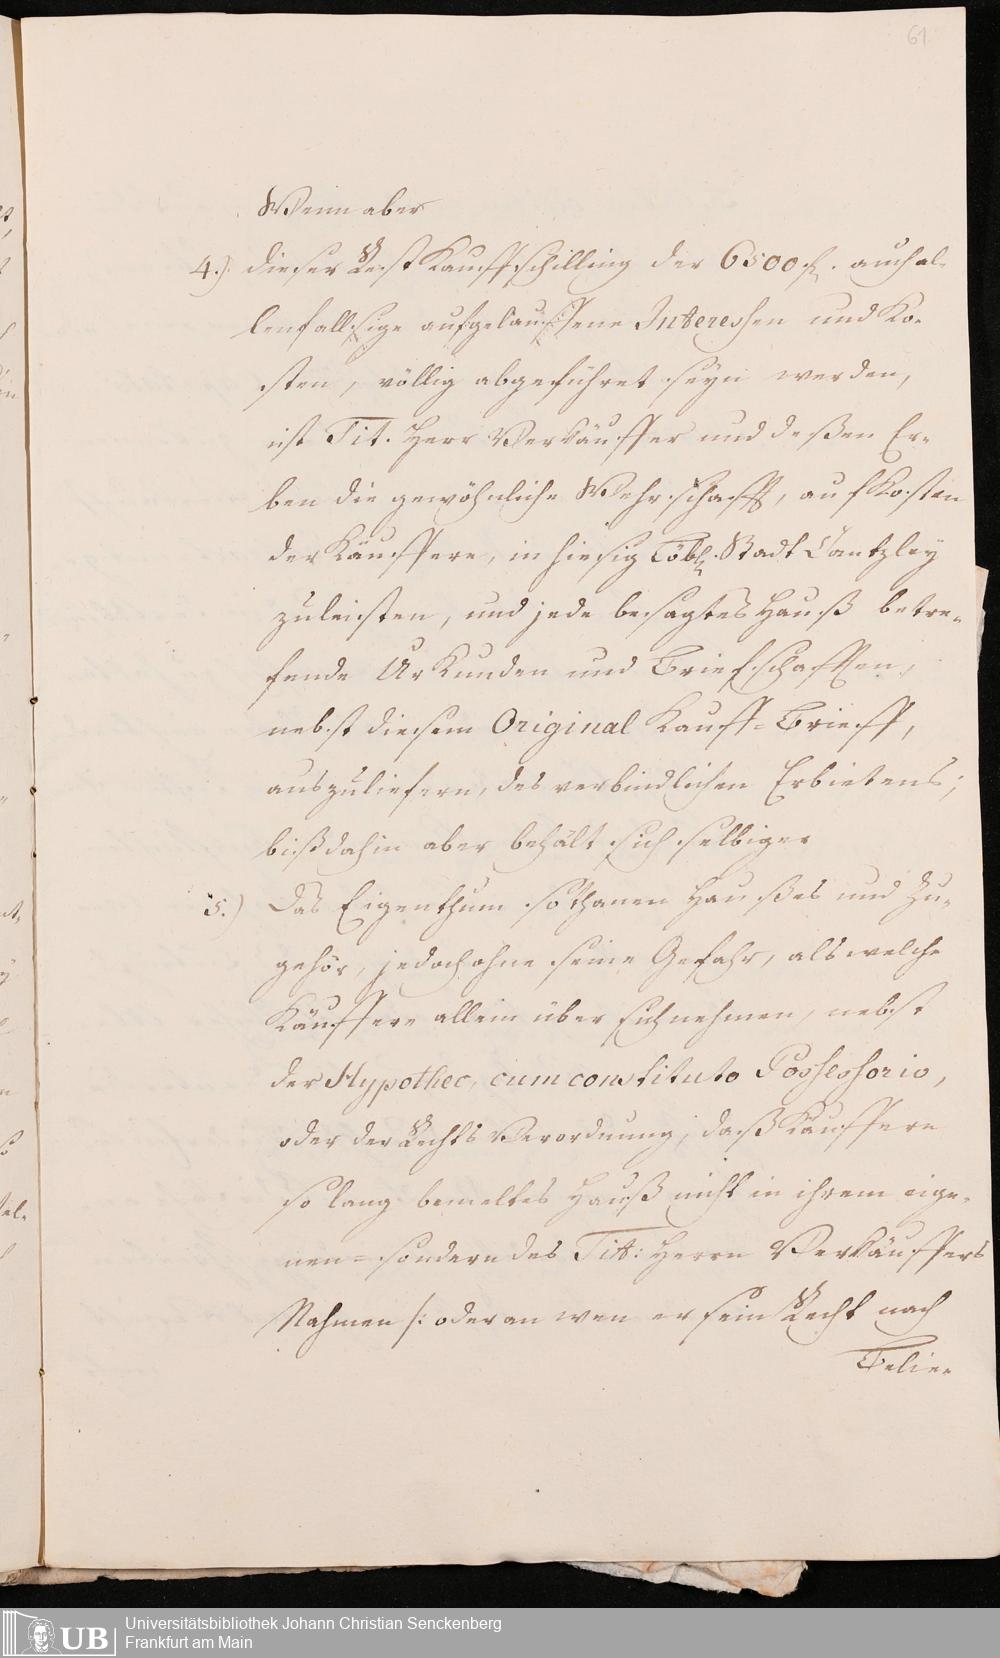 61
Wenn aber
4.) dieser Rest Kauffschilling der 6500 f. auch al-
lenfallsige aufgelauffene Interessen und Ko-
sten, völlig abgeführet seyn werden,
ist Tit. Herr Verkäuffer und deßen Er-
ben die gewöhnliche Wehrschafft, auf Kosten
der Käuffere, in hiesig Löbl. Stadt Cantzley
zuleisten, und jede besagtes Hauß betre-
fende Urkunden und Briefschafften,
nebst diesem Original Kauff-Brieff,
auszuliefern, des verbindlichen Erbietens;
bißdahin aber behält sich selbiger
5.) Das Eigenthum sothanen Haußes und Zu-
gehör, jedoch ohne seine Gefahr, als welche
Käuffere allein über sich nehmen, nebst
der Hypothec, cum constituto Possessorio,
oder der Rechts Verordnung, daß Käuffere
so lang bemeltes Hauß nicht in ihrem eige-
nen = sondern des Titt: Herrn Verkäuffers
Nahmen /: oder an wen er sein Recht nach
Belie-
UB
Universitätsbibliothek Johann Christian Senckenberg
Frankfurt am Main